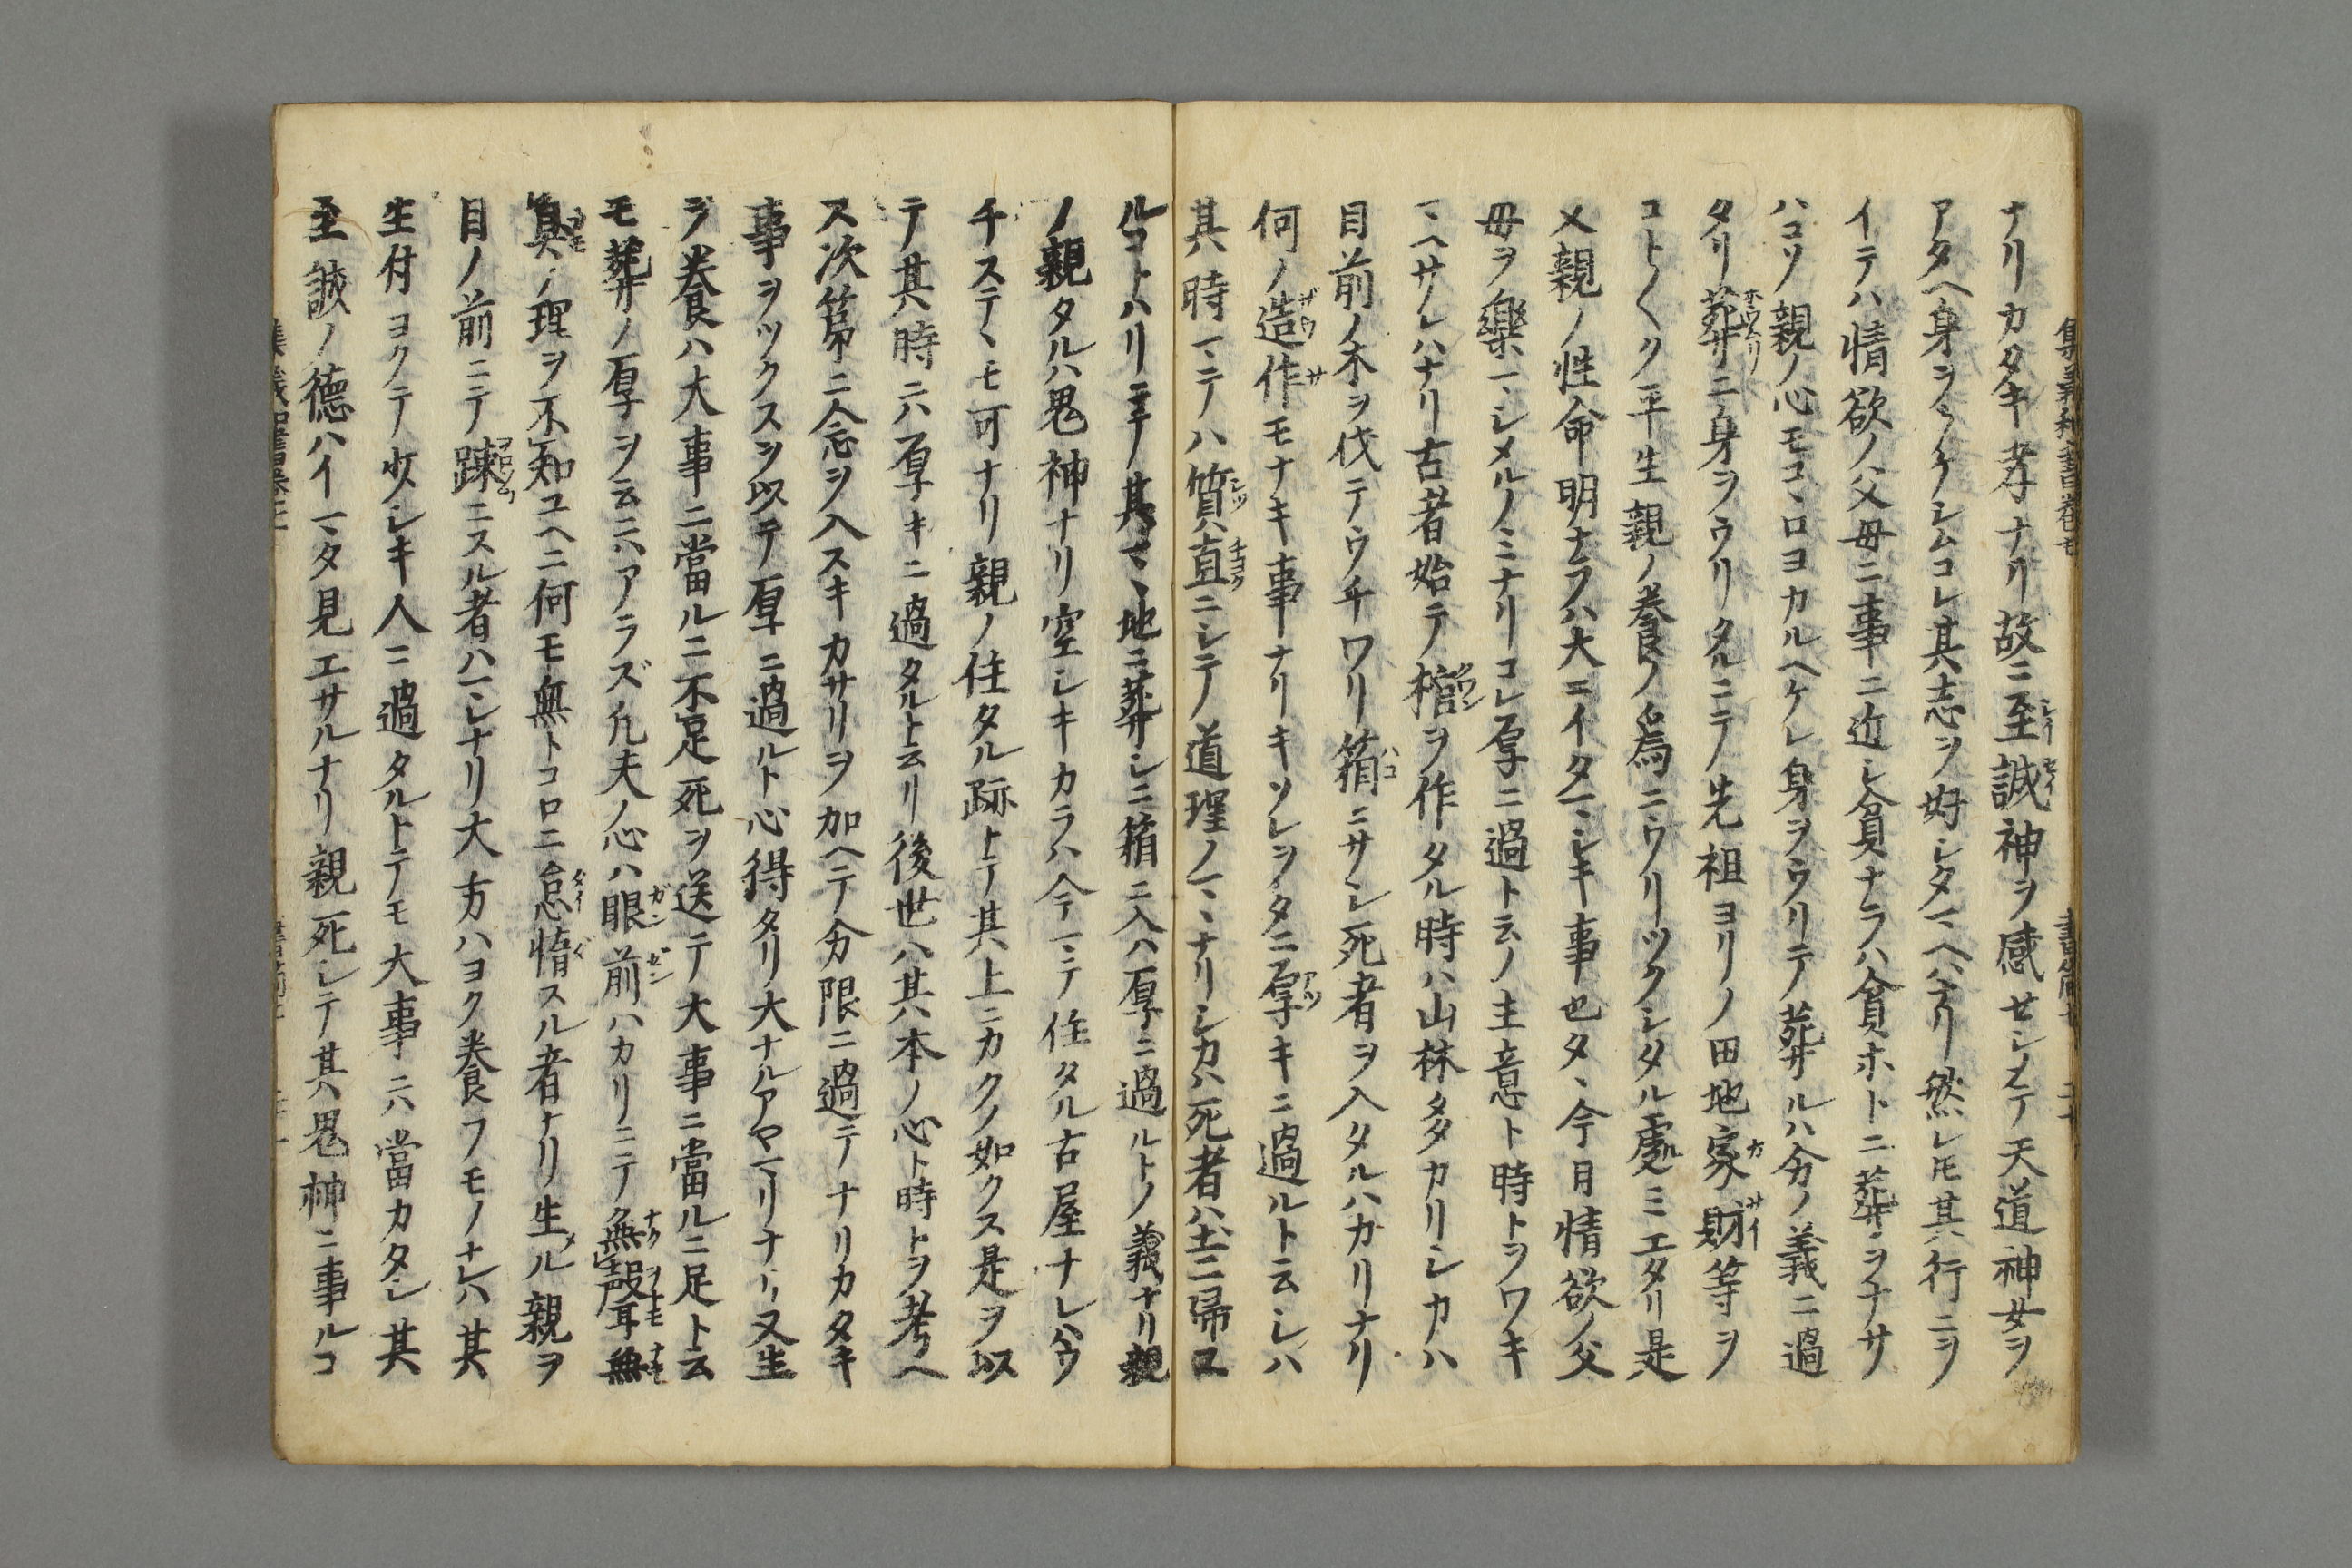 ナリカタキ孝ナリ故ニ至誠神ヲ感セシメテ天道神女ヲ
アタヘ身ヲウケシムコレ其志ヲ好シタマヘハナリ然レトモ其行ニヲ
イテハ情欲ノ父母ニ事ニ近シ貧ナラハ貧ホトニ葬ヲナサ
ハコソ親ノ心モコヽロヨカルヘケレ身ヲウリテ葬ルハ分ノ義ニ過
タリ葬ニ身ヲウリタルニテ先祖ヨリノ田地家財等ヲ
コト〱ク平生親ノ養ノ為ニウリツクシタル處ミエタリ是
又親ノ性命明ナラハ大ニイタマシキ事也タヽ今日情欲ノ父
母ヲ樂マシメルノミナリコレ厚ニ過ト云ノ主意ト時トヲワキ
マヘサレハナリ古者始テ棺ヲ作タル時ハ山林多カリシカハ
目前ノ木ヲ伐テウチワリ箱ニサシ死者ヲ入タルハカリナリ
何ノ造作モナキ事ナリキソレヲタニ厚キニ過ルト云シハ
其時マテハ質直ニシテ道理ノマヽナリシカハ死者ハ土ニ帰ス
ルコトハリニテ其マヽ地ニ葬シニ箱ニ入ハ厚ニ過ルトノ義ナリ親
ノ親タルハ鬼神ナリ空シキカラハ今マテ住タル古屋ナレハウ
チステヽモ可ナリ親ノ住タル跡トテ其上ニカクノ如クス是ヲ以
テ其時ニハ厚キニ過タルト云リ後世ハ其本ノ心ト時トヲ考ヘ
ス次第ニ念ヲ入スキカサリヲ加ヘテ分限ニ過テナリカタキ
事ヲツクスヲ以テ厚ニ過ルト心得タリ大ナルアヤマリナリ又生
ヲ養ハ大事ニ當ルニ不足死ヲ送テ大事ニ當ルニ足ト云
モ葬ノ厚ヲ云ニハアラズ凡夫ノ心ハ眼前ハカリニテ無聲無
臭ノ理ヲ不知ユヘニ何モ無トコロニ怠惰スル者ナリ生ル親ヲ
目ノ前ニテ踈ニスル者ハマレナリ大方ハヨク養フモノナレハ其
生付ヨクテ少シキ人ニ過タルトテモ大事ニハ當カタシ其
至誠ノ德ハイマタ見エサルナリ親死シテ其鬼神ニ事ルコ